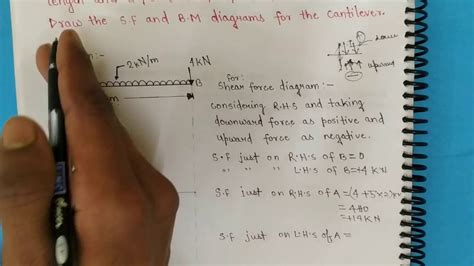 length and
Draw the S.F and B.M diagrams for the Cantilever.
2kN/m
4kN
B
m
for:
Shear force diagram:-
Considering R.H.S and taking
downward force as positive and
upward force as negative.
S.F just on R.H.S of B=0
" " " L.H.S of B=+4 KN
S.F just on R.H.S of A =(4+5x2)
= 4+10
=+14 KN
S.F just on L.H.S of A =
upward